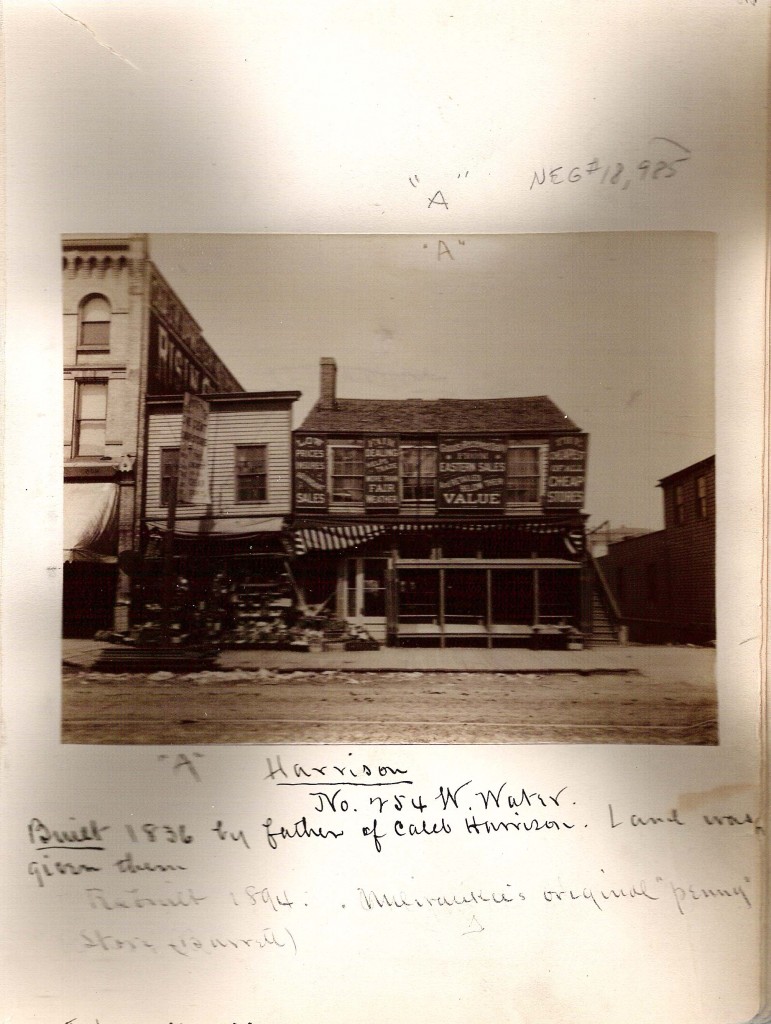 "A" NEG# 18,985
"A"
RISING
LOW
PRICES
INSURES
SALES
FAIR
DEALING
FAIR
FROM
EASTERN SALES
VALUE
CHEAPEST
OF ALL
CHEAP
STORES
"A" Harrison
No. 754 W. Water.
Built 1836 by father of Caleb Harrison. Land was
given them
Rebuilt 1894. Milwaukee's original "penny"
Store (Barrett)